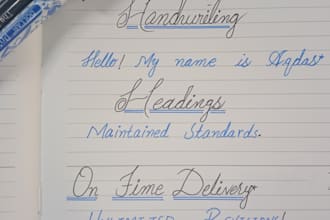 Handwriting
Hello! My name is Aqdas
Headings
Maintained Standards.
On Time Delivery